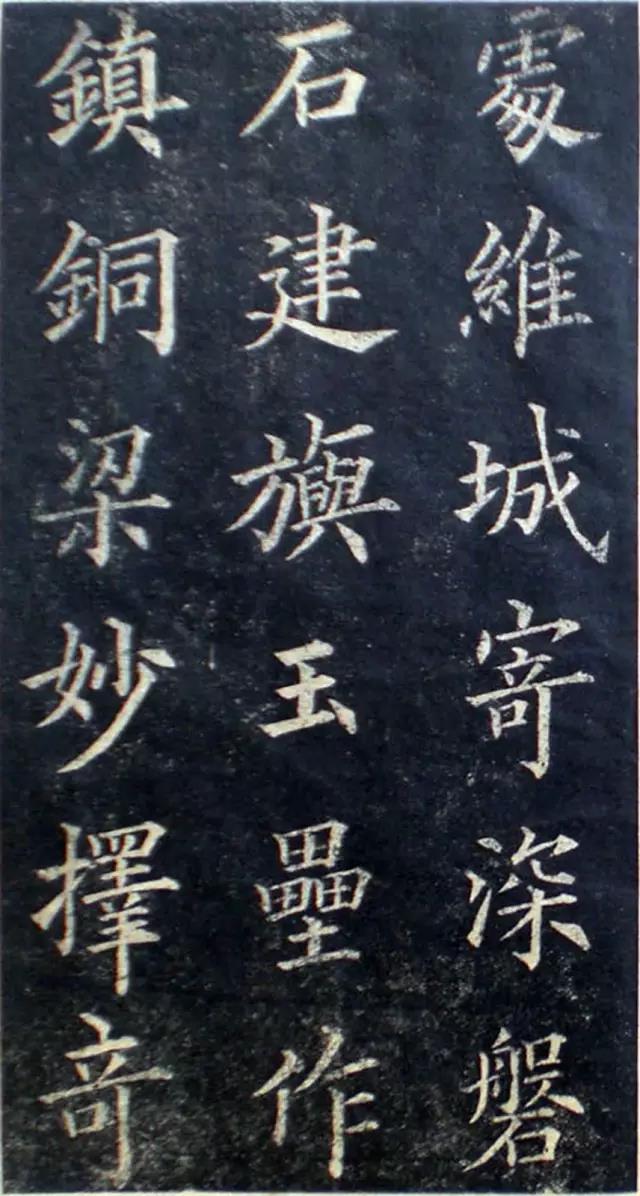 維城寄深磐
石建旟玉壘作
鎮銅梁妙擇奇